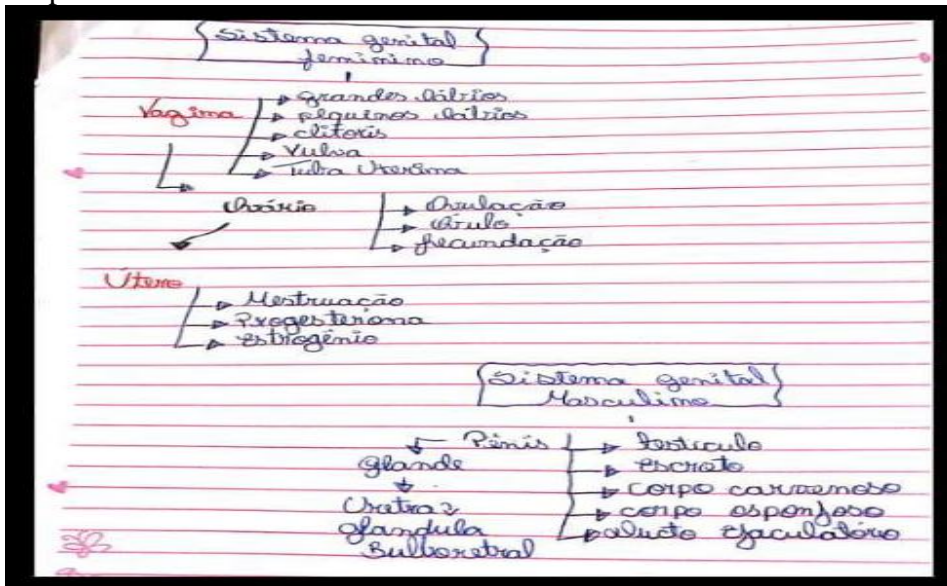 Sistema genital
feminino
Vagina
grandes lábios
pequenos lábios
clitoris
Vulva
Tuba Uterina
Ovário
Ovulação
óvulo
fecundação
Útero
Mestruação
Progesterona
estrogênio
Sistema genital
Masculino
Pênis
testículo
escroto
corpo carvenoso
corpo esponjoso
aducto ejaculatório
glande
Uretra
glandula
Bulboretral